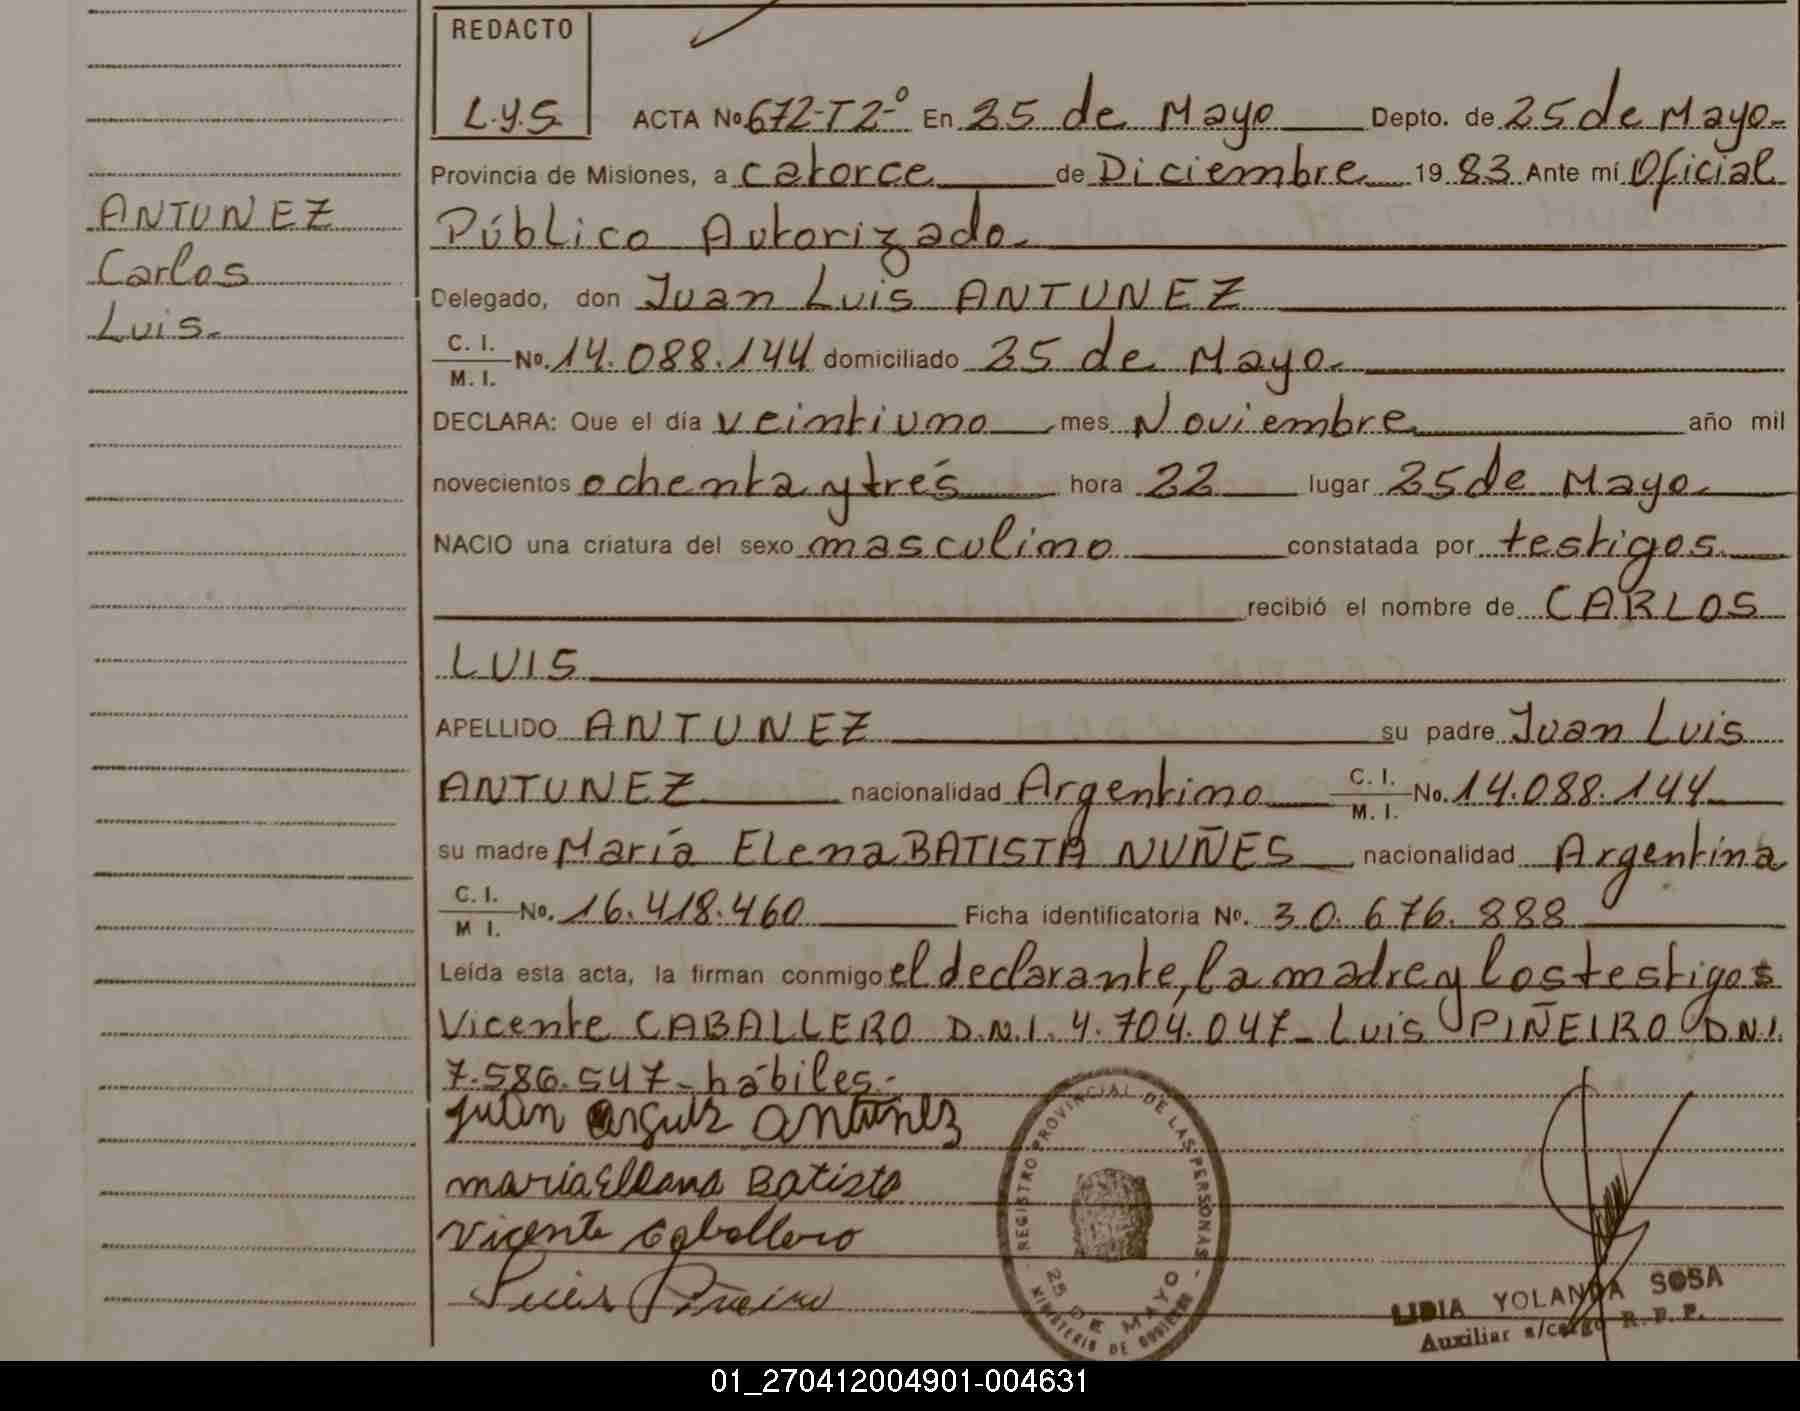 REDACTO
L.y.S.
ACTA No. 672-T2-º En 25 de Mayo Depto. de 25 de Mayo-
Provincia de Misiones, a catorce de Diciembre 19 83 Ante mí Oficial
Público Autorizado.
ANTUNEZ
Carlos
Luis.-
Delegado, don Juan Luis ANTUNEZ
C. I.
M. I. No. 14.088.144 domiciliado 25 de Mayo.
DECLARA: Que el día veintiuno mes Noviembre año mil
novecientos ochenta y trés hora 22 lugar 25 de Mayo.
NACIO una criatura del sexo masculino constatada por testigos
recibió el nombre de CARLOS
LUIS
APELLIDO ANTUNEZ su padre Juan Luis
ANTUNEZ nacionalidad Argentino C. I. M. I. No. 14.088.144
su madre María Elena BATISTA NUÑES nacionalidad Argentina
C. I.
M I. No. 16.418.460 Ficha identificatoria No. 30.676.888
Leída esta acta, la firman conmigo el declarante, la madre y los testigos
Vicente CABALLERO D.N.I. 4.704.047- Luis PIÑEIRO D.N.I.
7.586.547- hábiles.-
antunez
maria Elena Batista
Vicente Caballero
Luis Piñeiro
REGISTRO PROVINCIAL DE LAS PERSONAS
25 DE MAYO
MINISTERIO DE GOBIERNO
LIDIA YOLANDA SOSA
Auxiliar s/cargo R.P.P.
01_270412004901-004631